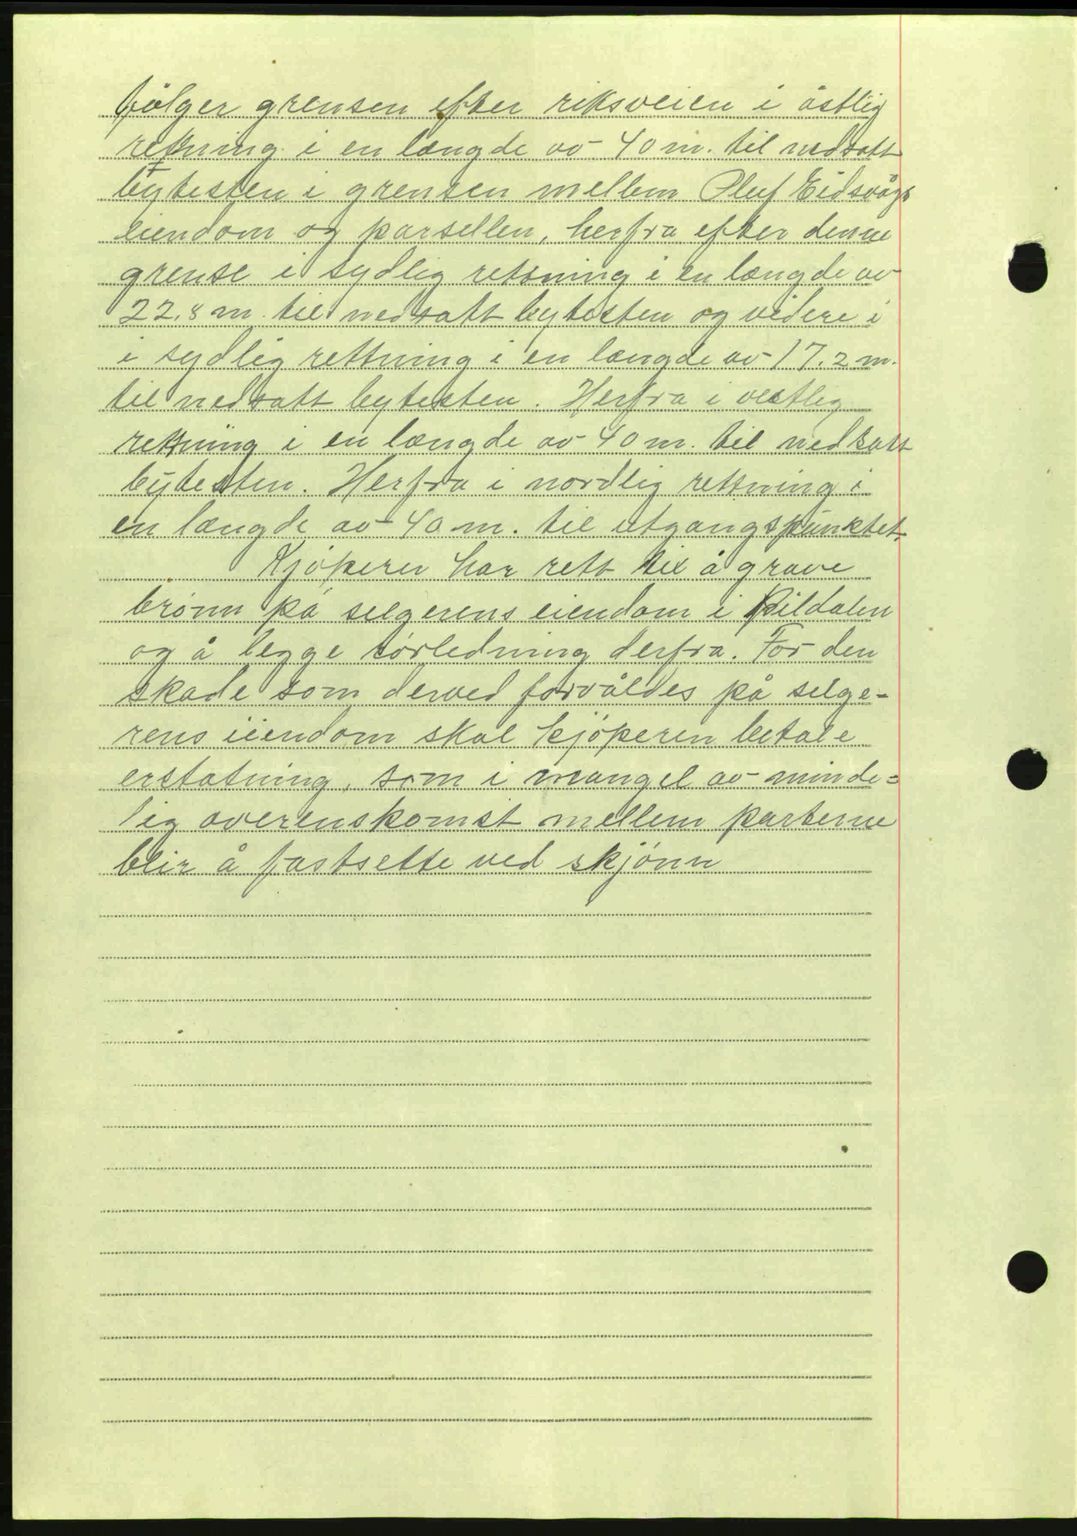 følger grensen efter riksveien i østlig
retning i en længde av 40 m. til nedsatt
bytesten i grensen mellem Oluf Eidsvågs
eiendom og parsellen, herfra efter denne
grense i sydlig rettning i en længde av
22,8 m. til nedsatt bytesten og videre i
i sydlig rettning i en længde av 17,2 m.
til nedsatt bytesten. Herfra i vestlig
rettning i en længde av 40 m. til nedsatt
bytesten. Herfra i nordlig rettning i
en længde av 40 m. til utgangspunktet.
Kjøperen har rett til å grave
brønn på selgerens eiendom i Pildalen
og å legge rørledning derfra. For den
skade som derved forvåldes på selge-
rens eiendom skal kjøperen betale
erstatning, som i mangel av minde-
lig overenskomst mellem parterne
blir å fastsette ved skjønn